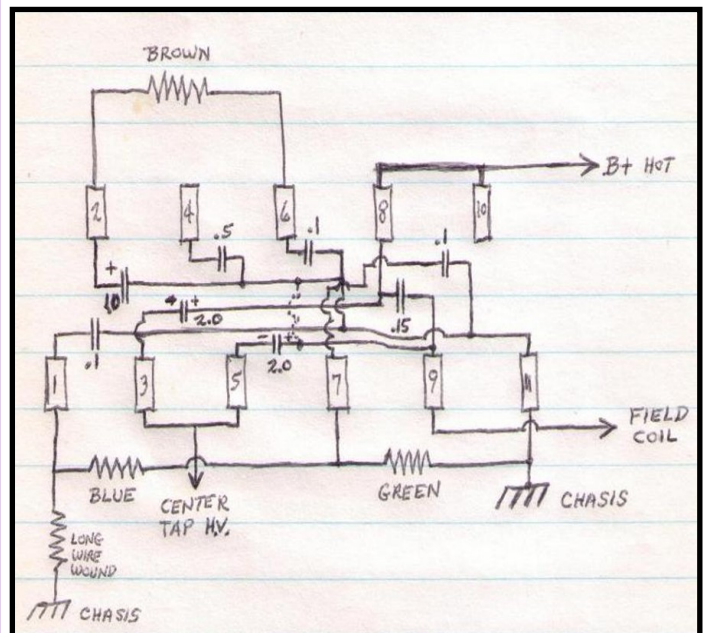 BROWN
B+ HOT
2
4
6
8
10
.5
.1
.1
+
10
+
2.0
.15
.1
-
+
2.0
1
3
5
7
9
11
FIELD
COIL
BLUE
CENTER
TAP H.V.
GREEN
CHASIS
LONG
WIRE
WOUND
CHASIS